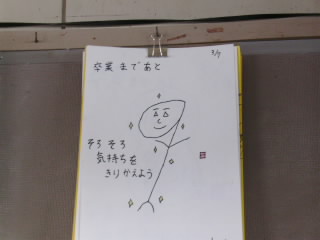 卒業まであと
3/7
そろそろ
気持ちを
きりかえよう